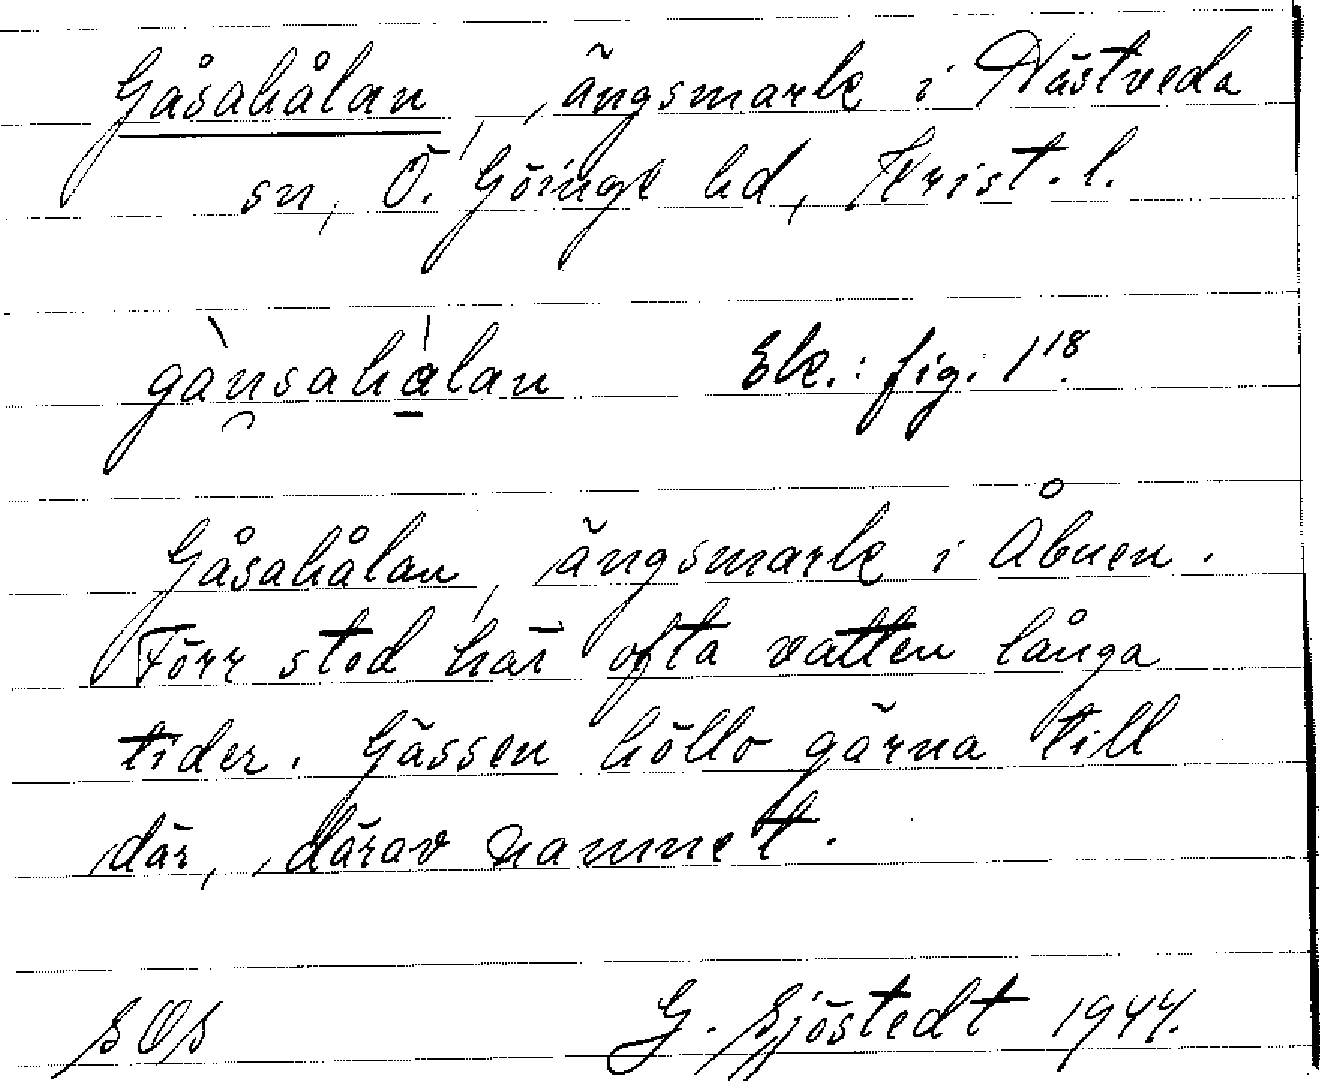 Gåsahålan, ängsmark i Nästveda
sn, Ö. Göinge hd, Krist. l.
gànsahálan Ek.: fig. 1¹⁸.
Gåsahålan, ängsmark i Åbuen.
Förr stod här ofta vatten långa
tider. Gässen höllo gärna till
där, därav namnet.
SOS G. Sjöstedt 1944.